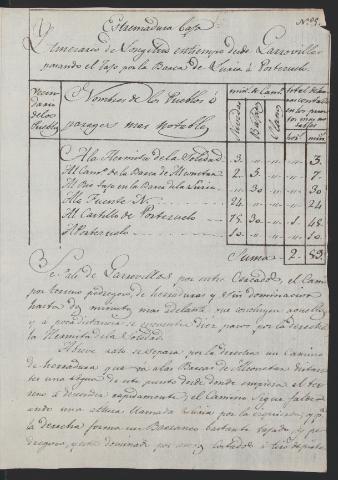 Nº 29.
Estremadura baja
Itinerario de Longitud en tiempo desde Garrovillas
pasando el Tajo por la Barca de Luria á Portezuelo
Vecindario de los Pueblos
Nombres de los Pueblos ó parages mas notables
minº de Camº
Subidas
Bajadas
Llano
total del
hors minº
A la Hermita de la Soledad 3. " " " 3.
Al Camº de la Barca de Alconetar 2. 5. " " 7.
Al Rio Tajo en la Barca de Luria " 30 " " 30
A la Fuente N. 24 " " " 24
Al Castillo de Portezuelo 78. 30 " 1. 48
A Portezuelo " 10. " " 10.
Suma 2.
Se sale de Garrovillas por entre Cercados, el Camº
por terreno pedregoso, de herraduras y sin dominacion
hasta diez minutos mas adelante que concluyen aquellos
y a poca distancia se encuentra diez pasos por la derecha
la Hermita de la Soledad.
A breve rato se separa por la derecha un camino
de herradura que va a las Barcas de Alconetar distan-
tes una legua de este punto desde donde empieza el ter-
reno a descender rapidamente; el Camino sigue faldea
ando una altura llamada Luria por la izquierda, y pº
la derecha forma un Barranco bastante rapido y pe-
dregoso, y este dominado por cortados a tiro de pistola